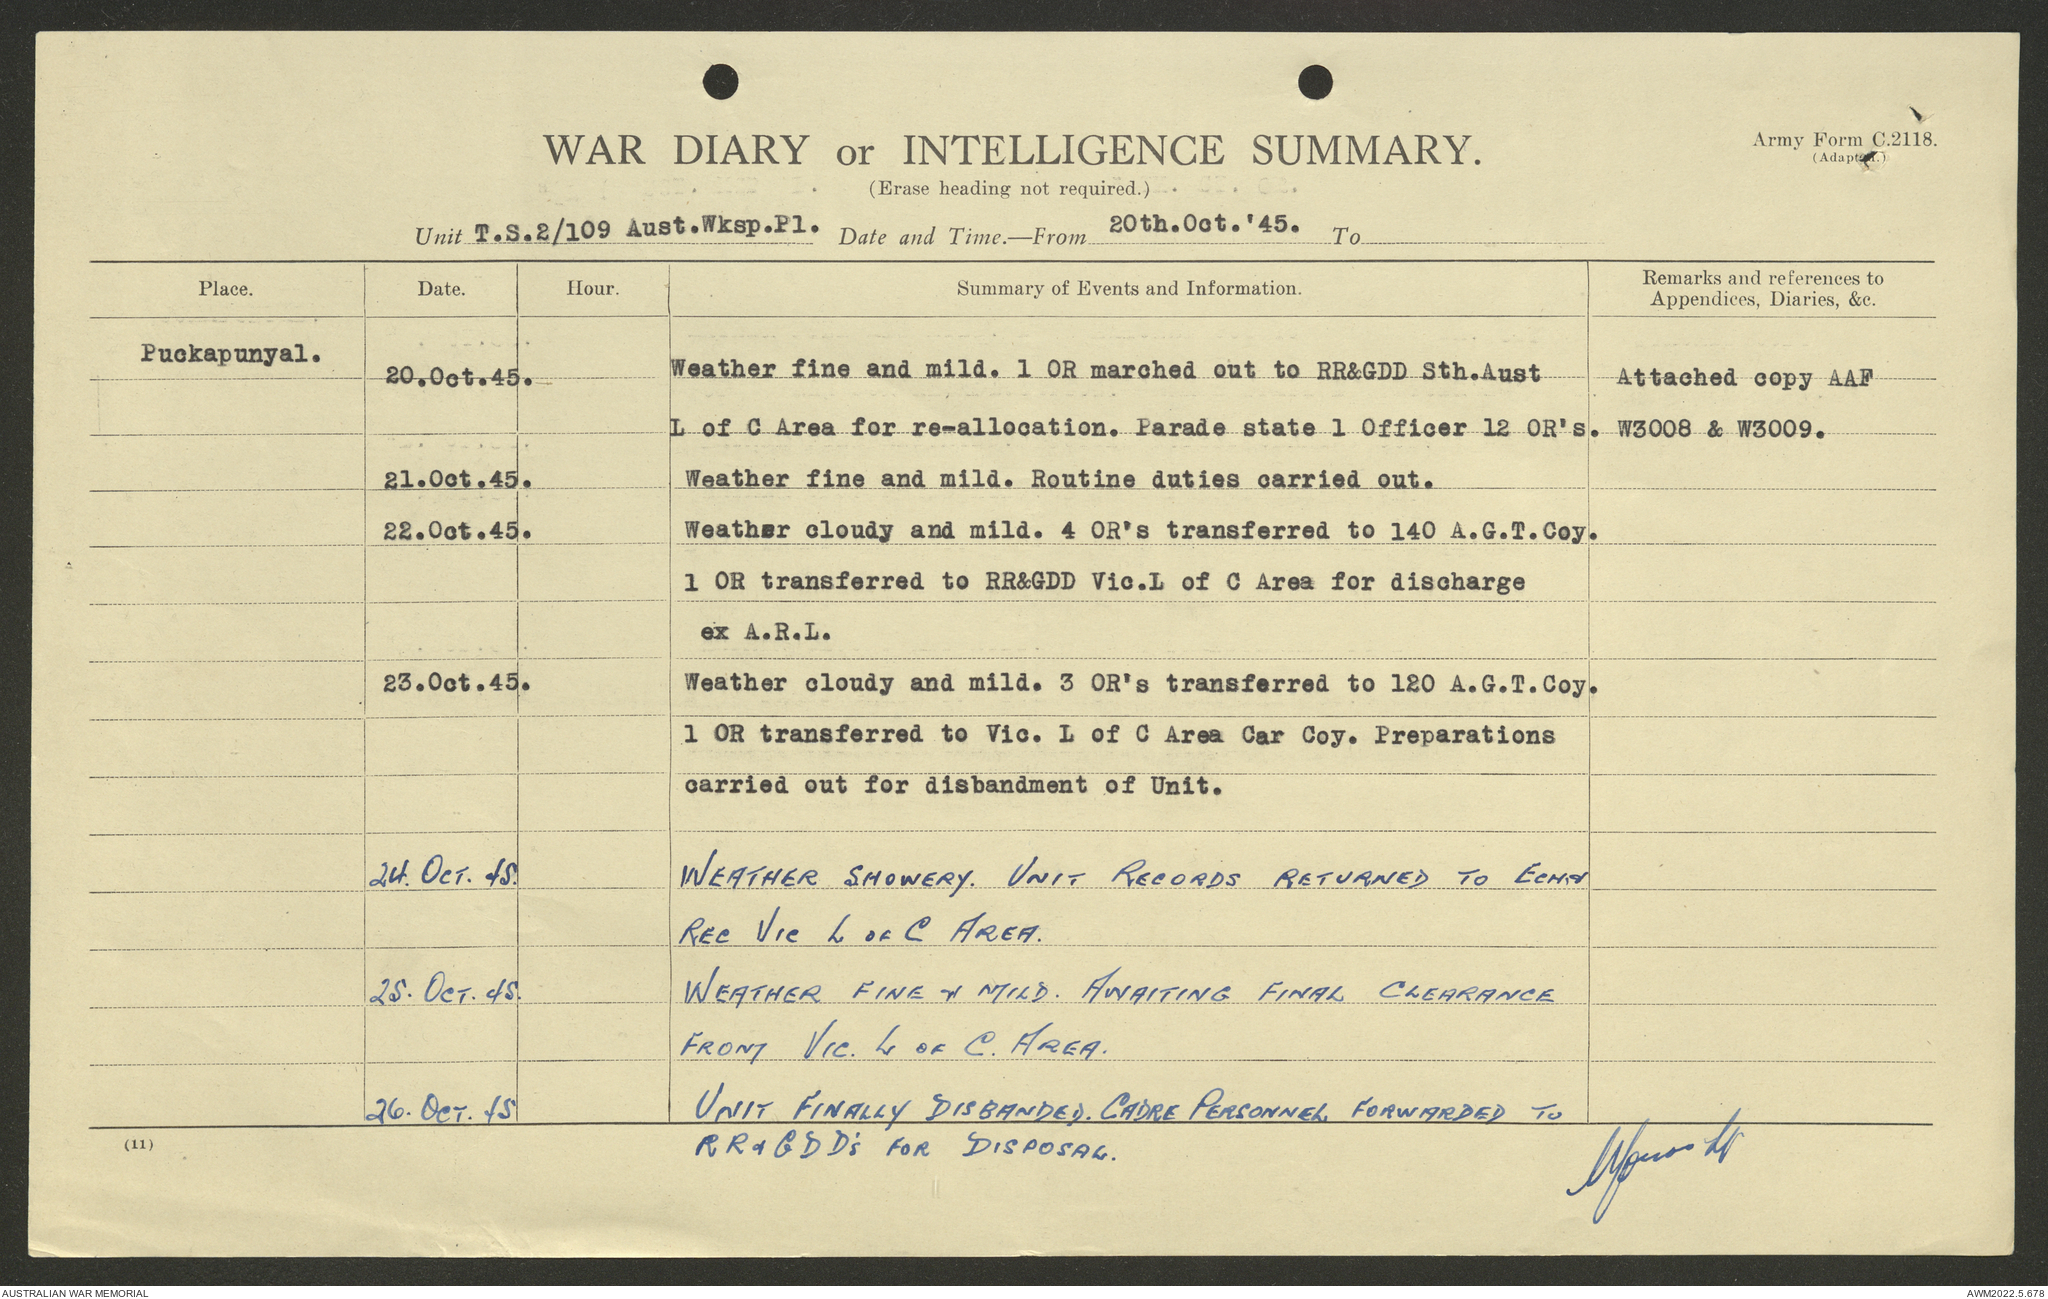 WAR DIARY or INTELLIGENCE SUMMARY.
Army Form C.2118.
(Adapted.)
(Erase heading not required.)
Unit T.S.2/109 Aust.Wksp.Pl. Date and Time.—From 20th.Oct.'45. To
Place. Date. Hour. Summary of Events and Information. Remarks and references to Appendices, Diaries, &c.
Puckapunyal.
20.Oct.45. Weather fine and mild. 1 OR marched out to RR&GDD Sth.Aust Attached copy AAF
L of C Area for re-allocation. Parade state 1 Officer 12 OR's. W3008 & W3009.
21.Oct.45. Weather fine and mild. Routine duties carried out.
22.Oct.45. Weather cloudy and mild. 4 OR's transferred to 140 A.G.T.Coy.
1 OR transferred to RR&GDD Vic.L of C Area for discharge
ex A.R.L.
23.Oct.45. Weather cloudy and mild. 3 OR's transferred to 120 A.G.T.Coy.
1 OR transferred to Vic. L of C Area Car Coy. Preparations
carried out for disbandment of Unit.
24. OCT. 45. WEATHER SHOWERY. UNIT RECORDS RETURNED TO
REC VIC L OF C AREA.
25. OCT. 45. WEATHER FINE & MILD. AWAITING FINAL CLEARANCE
FROM VIC. L OF C. AREA.
26. OCT. 45 UNIT FINALLY DISBANDED. CADRE PERSONNEL FORWARDED TO
RR & GDD's FOR DISPOSAL.
(11)
AUSTRALIAN WAR MEMORIAL
AWM2022.5.678